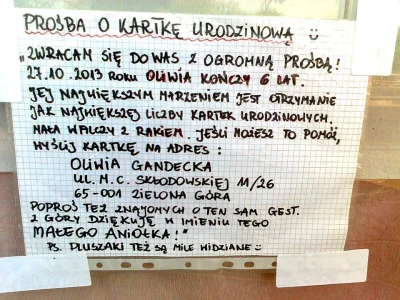 PROŚBA O KARTKĘ URODZINOWĄ :)
"ZWRACAM SIĘ DO WAS Z OGROMNĄ PROŚBĄ!
27.10.2013 ROKU OLIWIA KOŃCZY 6 LAT.
JEJ NAJWIĘKSZYM MARZENIEM JEST OTRZYMANIE
JAK NAJWIĘKSZEJ LICZBY KARTEK URODZINOWYCH.
MAŁA WALCZY Z RAKIEM. JEŚLI MOŻESZ TO POMÓŻ,
WYŚLIJ KARTKĘ NA ADRES:
OLIWIA GANDECKA
UL. M. C. SKŁODOWSKIEJ 11/26
65-001 ZIELONA GÓRA
POPROŚ TEŻ ZNAJOMYCH O TEN SAM GEST.
Z GÓRY DZIĘKUJĘ W IMIENIU TEGO
MAŁEGO ANIOŁKA!"
PS. PLUSZAKI TEŻ SĄ MILE WIDZIANE :)